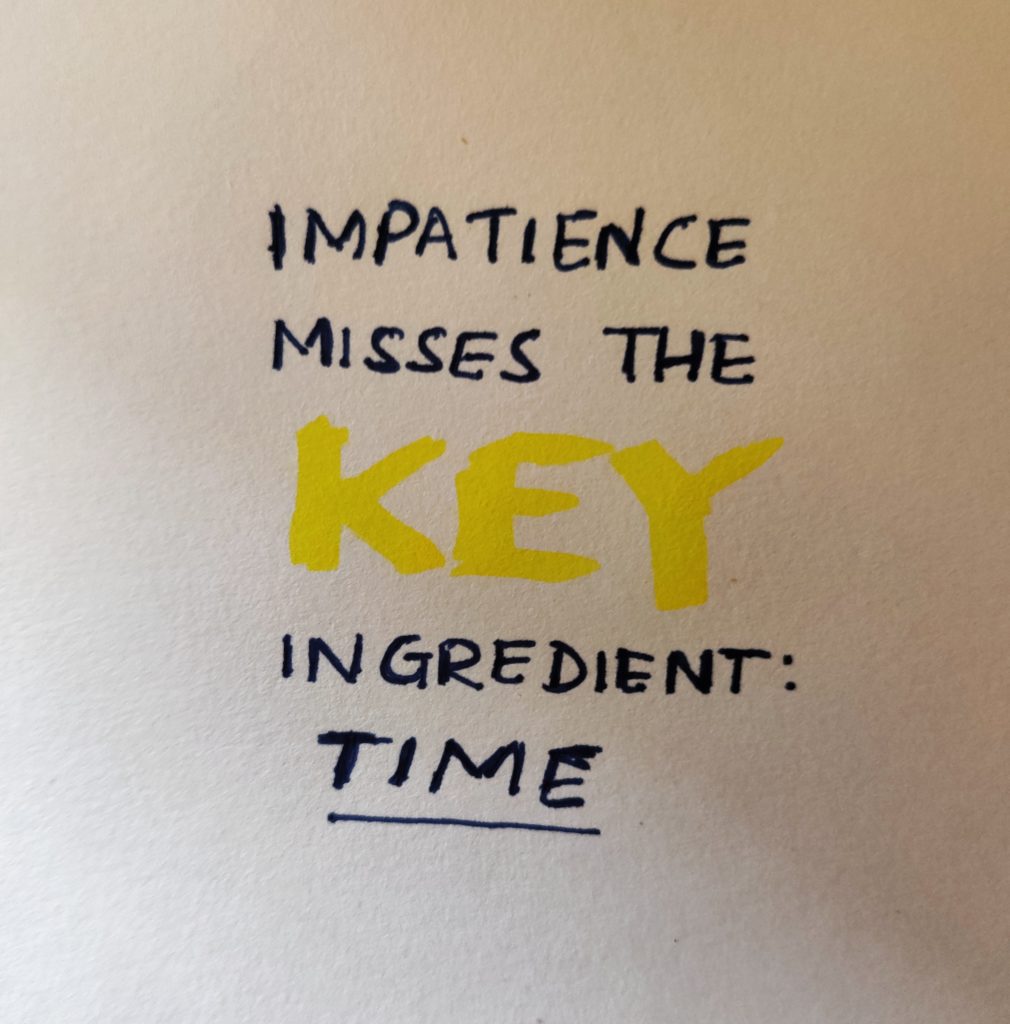 IMPATIENCE
MISSES THE
KEY
INGREDIENT:
TIME